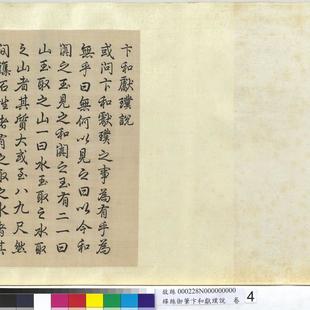 卞和獻璞說
或問卞和獻璞之事為有乎為
無乎曰無何以見之曰以今和
闐之玉見之和闐之玉有二一曰
山玉取之山一曰水玉取之水取
之山者其質大或至八九尺然
石性者有之取之水者其
故絲 000228N000000000
緙絲御筆卞和獻璞說 卷 4